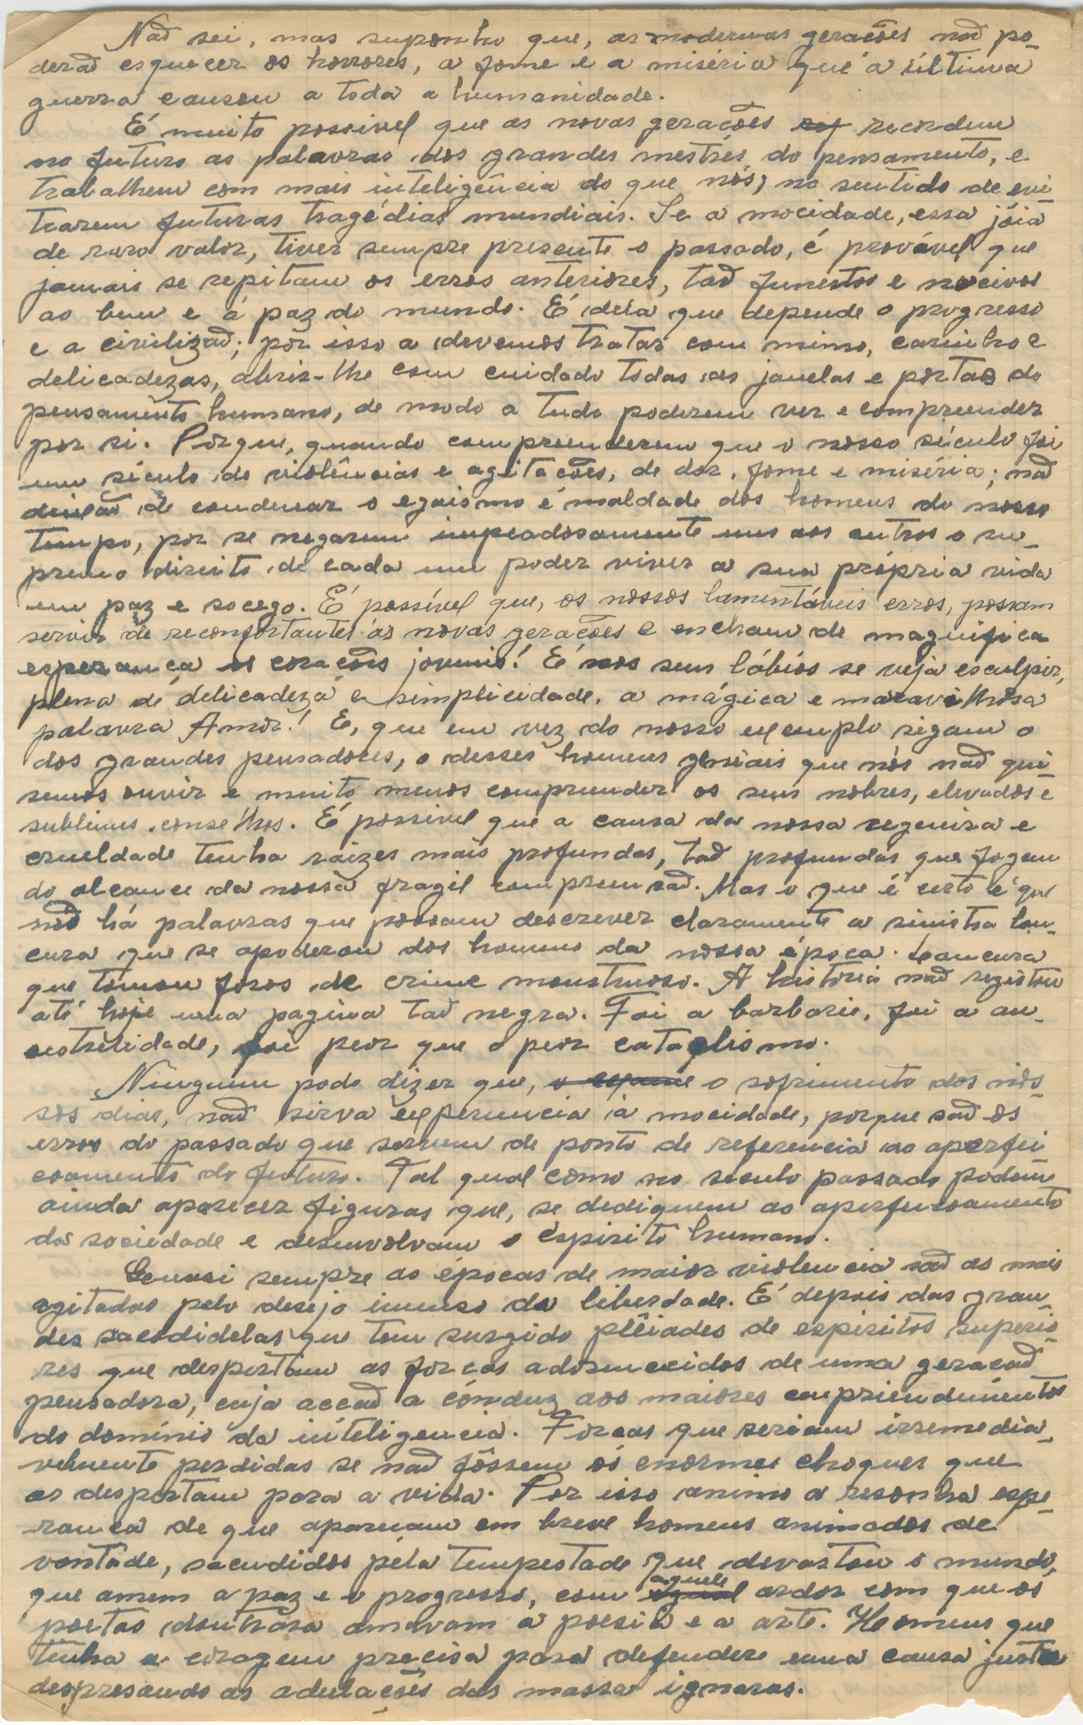 Não sei, mas suponho que, as modernas gerações não po-
derão esquecer os horrores, a fome e a miséria que a última
guerra causou a toda a humanidade.
É muito possivel que as novas gerações recordem
no futuro as palavras dos grandes mestres do pensamento, e
trabalhem com mais inteligência do que nós, no sentido de evi-
tarem futuras tragédias mundiais. Se a mocidade, essa jóia
de raro valor, tiver sempre presente o passado, é provável que
jamais se repitam os erros anteriores, tão funestos e nocivos
ao bem e á paz do mundo. É dela que depende o progresso
e a civilizaã; por isso a devemos tratar com mimo, carinho e
delicadezas, abrir-lhe com cuidado todas as janelas e portas do
pensamento humano, de modo a tudo poderem ver e compreender
por si. Porque, quando compreenderem que o nosso século foi
um século de violências e agitações, de dor, fome e miséria; não
deixão de condenar o egoismo e maldade dos homens do nosso
tempo, por se negarem impeadosamente uns aos outros o su-
premo direito de cada um poder viver a sua própria vida
em paz e socego. É possível que, os nossos lamentáveis erros, possam
servir de reconfortantes ás novas gerações e encham de magnifica
esperança os corações jovenis! E nos seus lábios se veja esculpir,
plena de delicadeza e simplicidade, a mágica e maravilhosa
palavra Amor! E, que em vez do nosso exemplo sigam o
dos grandes pensadores, o desses homens geniais que nós não qui-
semos ouvir e muito menos compreender os seus nobres, elevados e
sublimes conselhos. É possivel que a causa da nossa cegueira e
crueldade tenha raízes mais profundas, tão profundas que fogem
do alcance da nossa fragil compreensão. Mas o que é certo é que
não há palavras que possam descrever claramente a sinistra lou-
cura que se apoderou dos homens da nossa época. Loucura
que tomou foros de crime monstruoso. A história não registou
até hoje uma pagina tão negra. Foi a barbarie, foi a au-
, foi peor que o peor cataclismo.
Ninguem pode dizer que, o sofrimento dos nos-
sos dias, não sirva experiencia á mocidade, porque são os
erros do passado que servem de ponto de referencia ao aperfei-
coamento do futuro. Tal qual como no seculo passado podem
ainda aparecer figuras que, se dediquem ao aperfeicoamento
da sociedade e desenvolvam o espirito humano.
Quasi sempre as épocas de maior violencia são as mais
agitadas pelo desejo imenso da liberdade. É depois das gran-
des sacudidelas que tem surgido plêiades de espiritos superio-
res que despertam as forcas adormecidas de uma geracão
pensadora, cuja accão a conduz aos maiores empriendimentos
do domínio da inteligencia. Forcas que seriam irremedia-
velmente perdidas se não fôssem os enormes choques que
as despertam para a vida. Por isso animo a risonha espe-
ranca de que aparecam em breve homens animados de
vontade, sacudidos pela tempestade que devastou o mundo,
que amem a paz e o progresso, com aquele ardor com que os
poetas doutrora amavam a poesia e a arte. Homens que
tenha a coragem precisa para defender uma causa justa
despresando as adulações das massa ignaras.